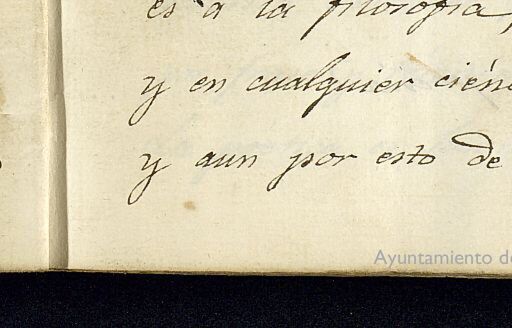 es a la filosofia,
y en cualquier cién
y aun por esto de
Ayuntamiento de